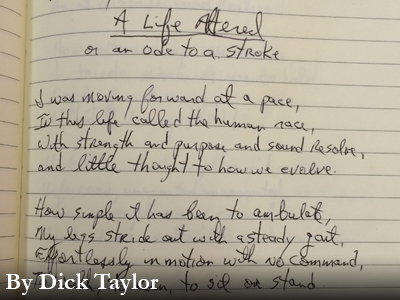 A Life Altered
or an ode to a stroke
I was moving forward at a pace,
In this life called the human race,
with strength and purpose and sound resolve,
and little thought to how we evolve.
How simple it has been to ambulate,
My legs stride out with a steady gait,
Effortlessly in motion with no command,
to sit or stand.
By Dick Taylor